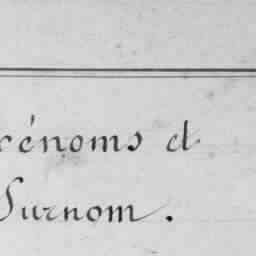 rénoms et
Surnom.